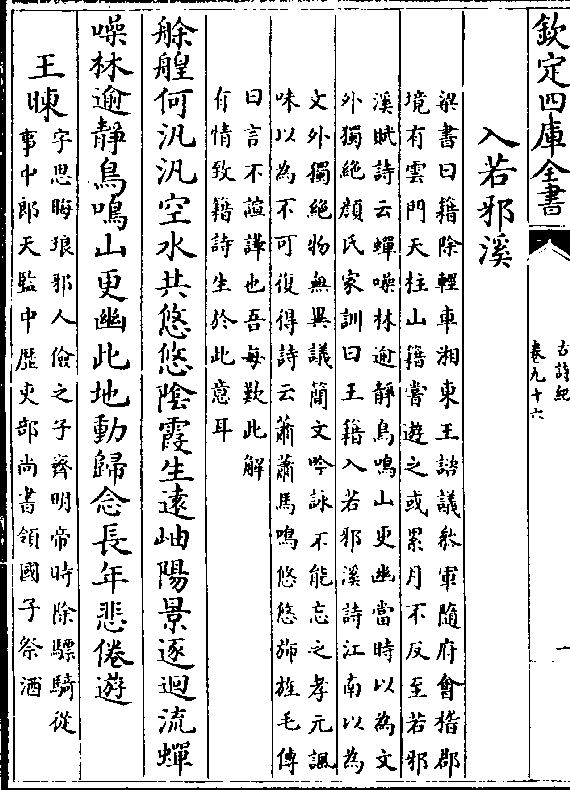 欽定四庫全書
古詩紀
卷九十六
一
入若邪溪
梁書曰籍除輕車湘東王諮議叅軍隨府會稽郡
境有雲門天柱山籍嘗遊之或累月不反至若邪
溪賦詩云蟬噪林逾靜鳥鳴山更幽當時以為文
外獨絶顔氏家訓曰王籍入若邪溪詩江南以為
文外獨絶物無異議簡文吟詠不能忘之孝元諷
味以為不可復得詩云蕭蕭馬鳴悠悠斾旌毛傳
曰言不諠譁也吾每歎此解
有情致籍詩生於此意耳
艅艎何汎汎空水共悠悠陰霞生遠岫陽景逐迴流蟬
噪林逾靜鳥鳴山更幽此地動歸念長年悲倦遊
王暕
字思晦琅邪人儉之子齊明帝時除驃騎從
事中郎天監中歴吏部尚書領國子祭酒